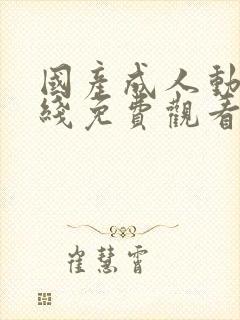 國產成人動
綫免費觀看
崔慧霄